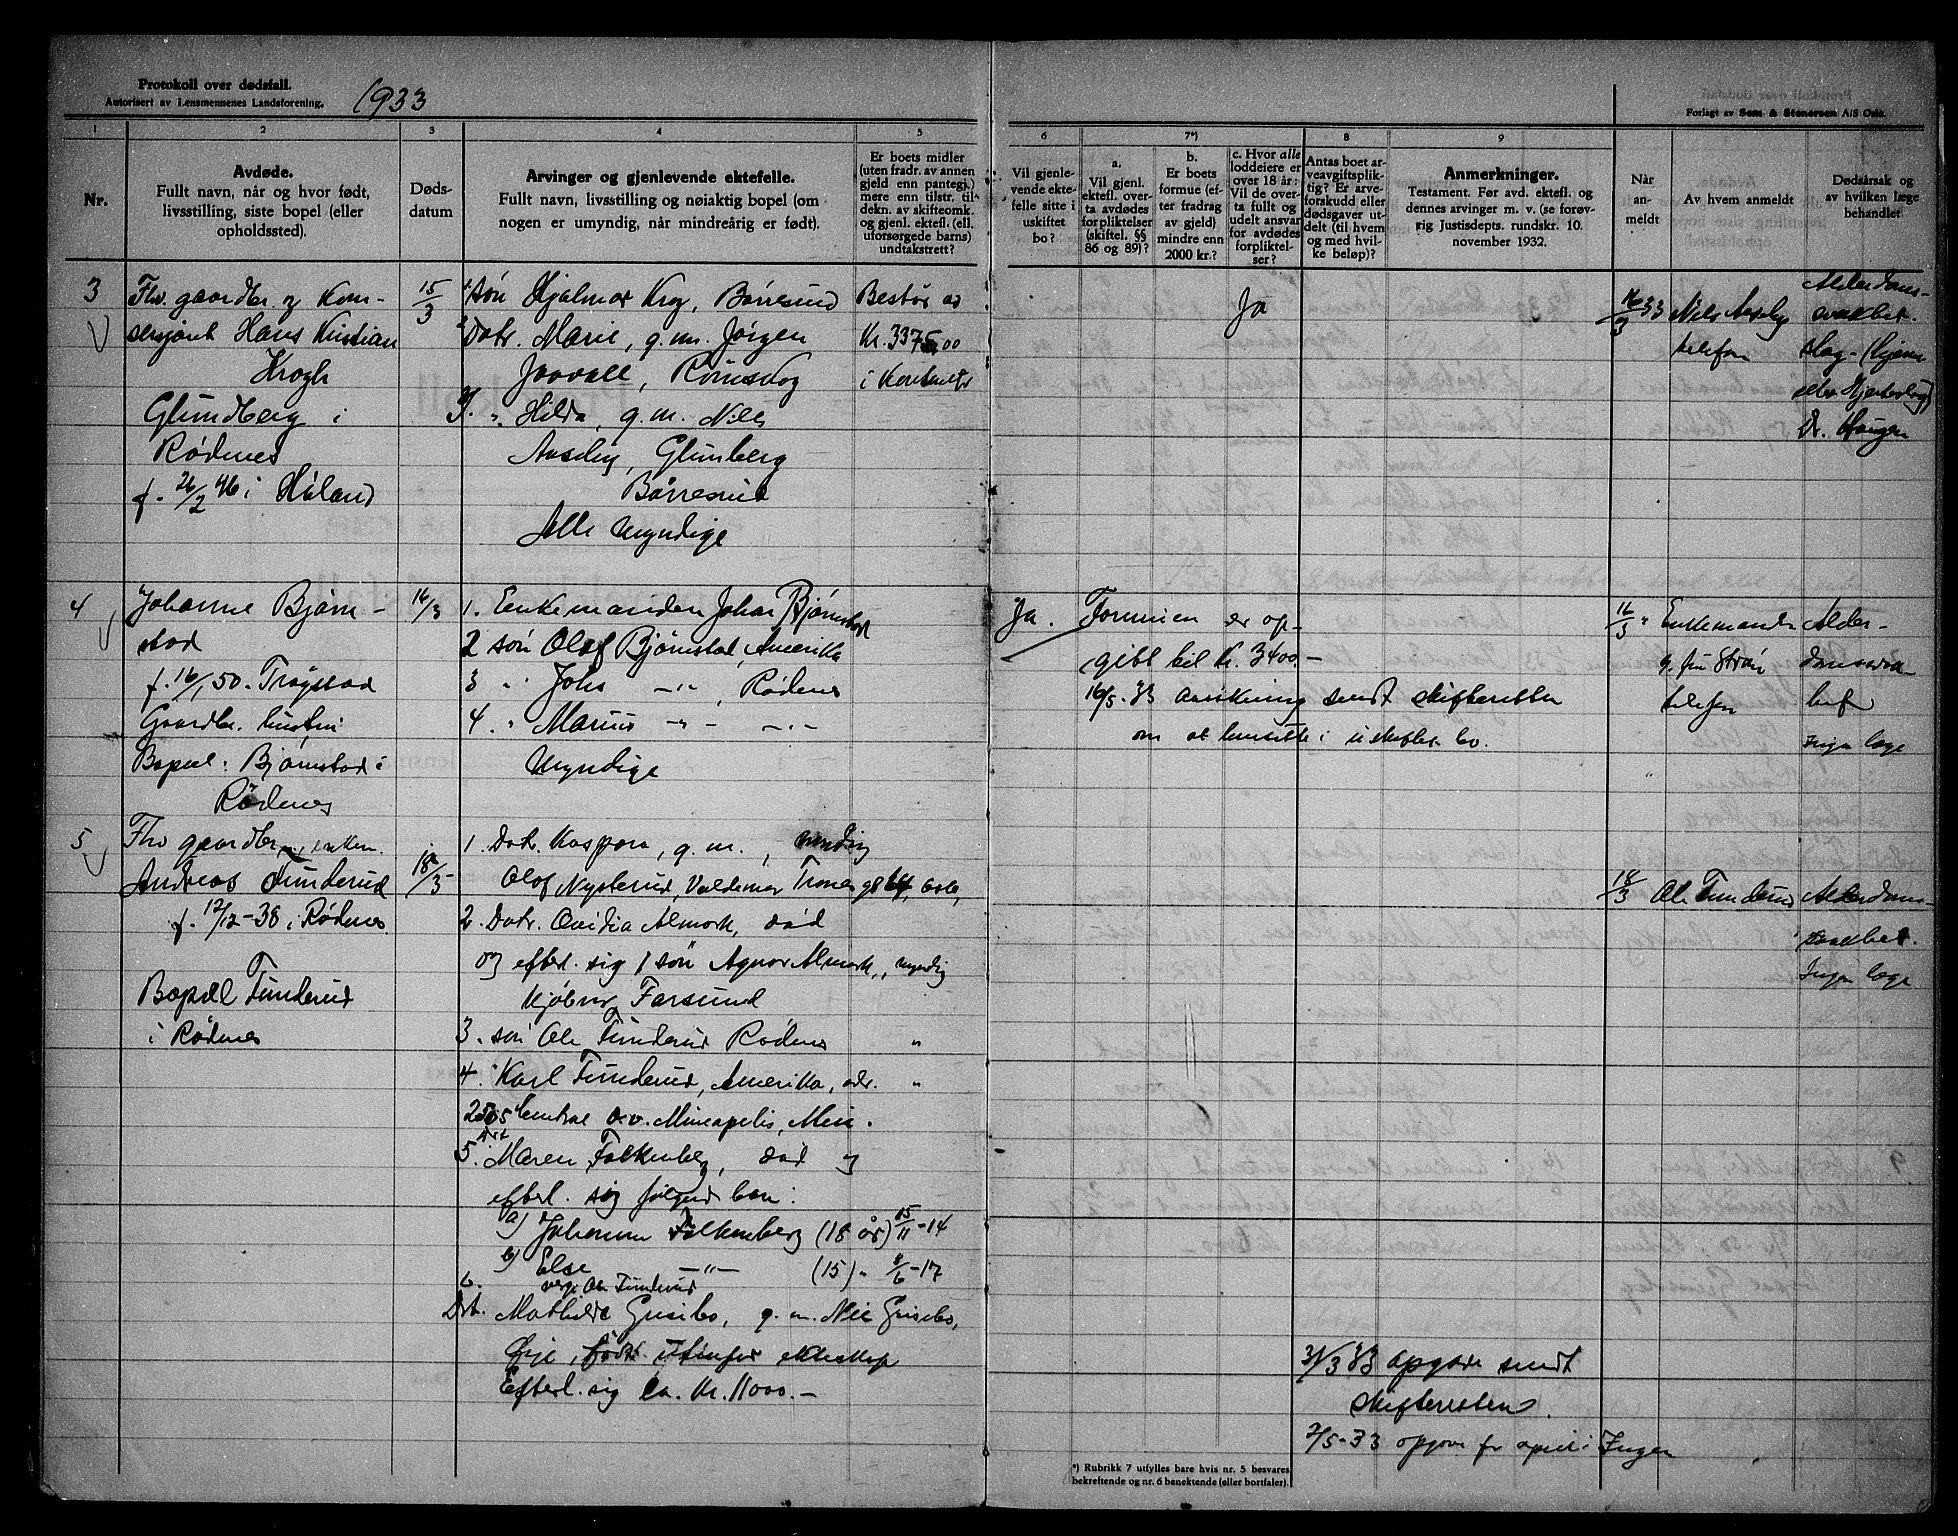 Protokoll over dødsfall.
Autorisert av Lensmennenes Landsforening.
1933
Forlagt av Sem & Stenersen A/S Oslo.
1
2
3
4
5
6
7*)
8
9
Nr.
Avdøde.
Fullt navn, når og hvor født,
livsstilling, siste bopel (eller
opholdssted).
Døds-
datum
Arvinger og gjenlevende ektefelle.
Fullt navn, livsstilling og nøiaktig bopel (om
nogen er umyndig, når mindreårig er født).
Er boets midler
(uten fradr. av annen
gjeld enn pantegj.)
mere enn tilstr. til
dekn. av skifteomk.
og gjenl. ektefl. (ell.
uforsørgede barns)
undtakstrett?
Vil gjenle-
vende ekte-
felle sitte i
uskiftet
bo?
a.
Vil gjenl.
ektefl. over-
ta avdødes
forpliktelser
(skiftel. §§
86 og 89)?
b.
Er boets
formue (ef-
ter fradrag
av gjeld)
mindre enn
2000 kr.?
c. Hvor alle
loddeiere er
over 18 år:
Vil de over-
ta fullt og
udelt ansvar
for avdødes
forpliktel-
ser?
Antas boet ar-
veavgiftsplik-
tig? Er arve-
forskudd eller
dødsgaver ut-
delt (til hvem
og med hvil-
ke beløp)?
Anmerkninger.
Testament. Før avd. ektefl. og
dennes arvinger m. v. (se forøv-
rig Justisdepts. rundskr. 10.
november 1932.
Når
an-
meldt
Av hvem anmeldt
Dødsårsak og
av hvilken læge
behandlet
3
Fhv. gaardbr. og Kom-
Hans Kristian
Krogh
Glundberg i
Rødenes
f. 26/2 46 i Høland
15/3
1 søn Hjalmar Krog, Børresund
2 Datr. Marie, g.m. Jørgen
Jaavall, Rømskog
3. " Hilda, g.m. Nils
Aaseby, Glunberg
Børresund
Alle myndige
Bestør av
Kr. 3375,00
i Kontanter
Ja
16/3 33
Nils Aaseby
telefon
Alderdoms-
svakhet.
Slag- (Hjerne
eller Hjerteslag)
Dr. Haugen
4
Johanne Bjørn-
stad
f. 16/1 50. Trøgstad
Gaardbr. hustru
Bopæl: Bjørnstad i
Rødenes
16/3
1. Enkemanden Johan Bjørnstad
2 søn Olaf Bjørnstad, Amerika
3 " Johs —"—, Rødenes
4. " Marius —"— —"—
Myndige
Ja.
Formuen er op-
gitt til Kr. 3400.-
16/5-33 ansøkning sendt skifteretten
om at hensitte i uskiftet bo.
16/3 "
Enkemanden
telefon
Alder-
domssvak-
het
Ingen læge
5
Fhv gaardbr., enkem.
Andreas Tunderud
f. 12/12-38 i Rødenes
Bopæl Tunderud
i Rødenes
18/3
1. Datr. Kaspara, g.m., myndig
Olaf Nysterud, Valdemar Tranes g 8 64, Oslo,
2. Datr. Ovidia Almork, død
og efterl. sig 1 søn Agnar Almork, myndig
Kjøbm. Farsund
3. søn Ole Tunderud Rødenes "
4. " Karl Tunderud, Amerika, adr. "
2505 Central av. Mineapolis, Min.
5. Maren Falkenberg, død og
efterl. sig følgende barn:
a) Johanne Falkenberg (18 år) 15/11-14
b) Else —"— (15) " 8/6-17
verge Ole Tunderud
6.
Datr. Mathilde Grisebo, g.m. Nils Grisebo,
Ørje, født utenfor ekteskap
Efterl. sig ca. Kr. 11000.-
18/3
Ole Tunderud
Alderdoms-
svakhet.
Ingen læge
31/3 33 opgave sendt
skifteretten.
2/5-33 opgave for april: Ingen
*) Rubrikk 7 utfylles bare hvis nr. 5 besvares
bekreftende og nr. 6 benektende (eller bortfaler).